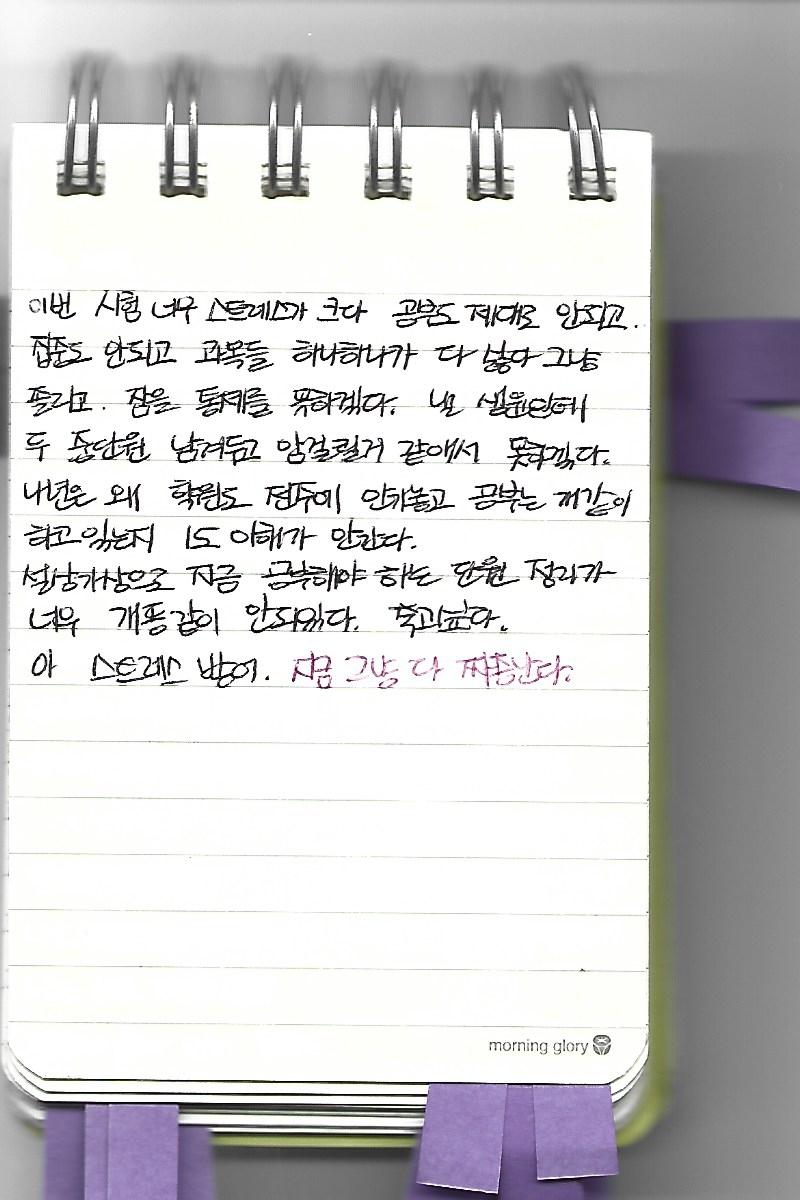 이번 시험 너무 스트레스가 크다 공부도 제대로 안되고.
집중도 안되고 과목들 하나하나가 다 넓다 그냥
졸리고. 잠을 통제를 못하겠다.
두 중단원 남겨두고 암걸릴거 같애서 못하겠다.
나년은 왜 학원도 전주에 안가놓고 공부는 개같이
하고있는지 1도 이해가 안간다.
설상가상으로 지금 공부해야 하는 단원 정리가
너무 개똥같이 안되있다. 죽고싶다.
아 스트레스 받어. 지금 그냥 다 짜증난다.
morning glory